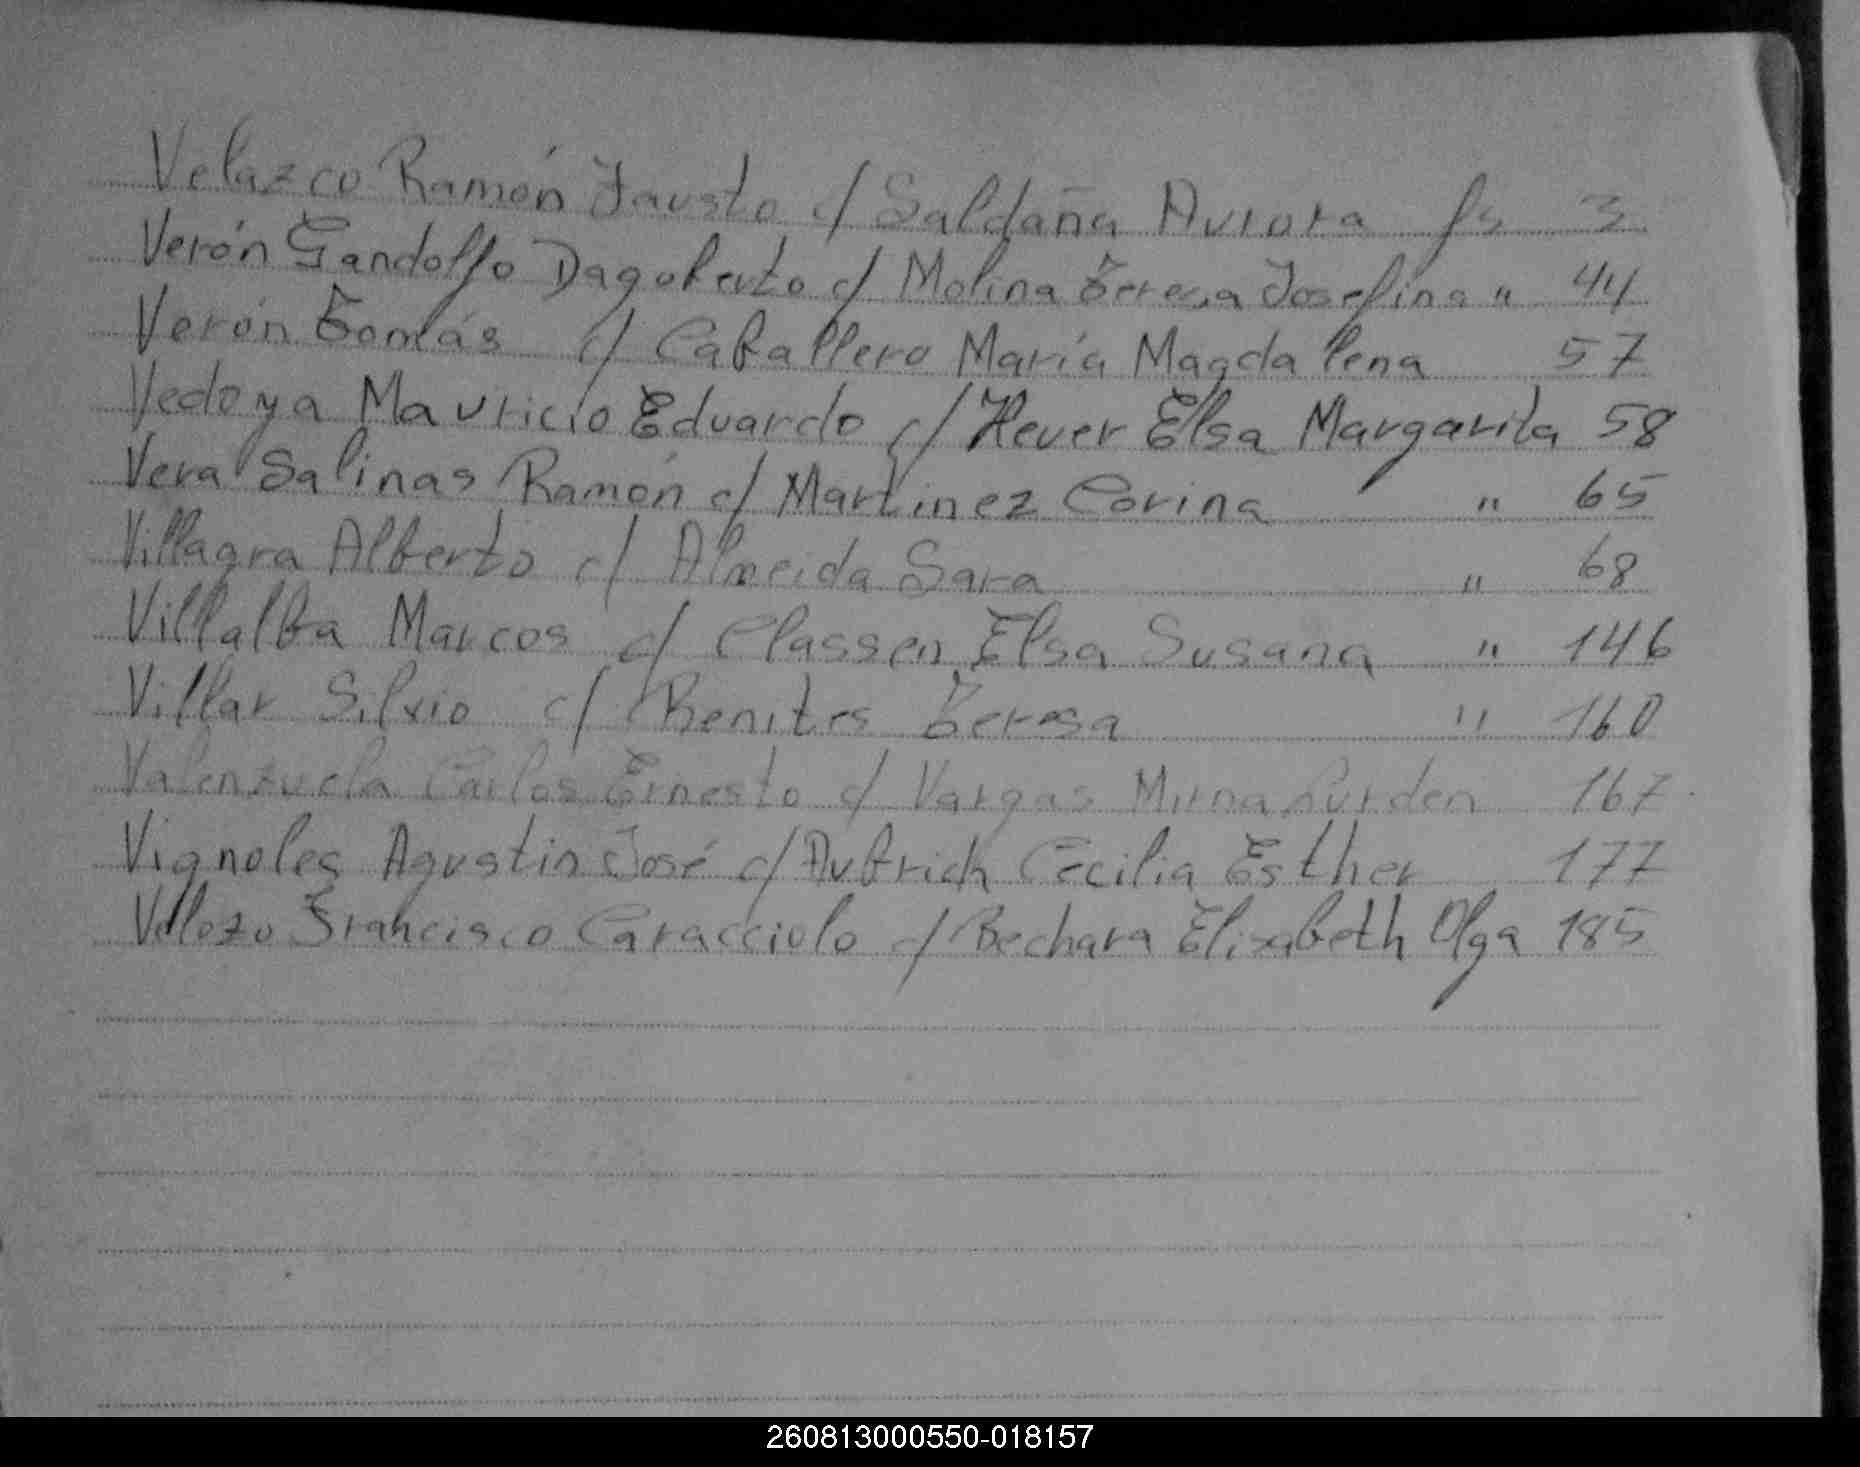 Velazco Ramón Fausto c/ Saldaña Aurora fs 3
Verón Gandolfo Dagoberto c/ Molina Teresa Josefina " 44
Verón Tomás c/ Caballero María Magdalena 57
Vedoya Mauricio Eduardo c/ Hever Elsa Margarita 58
Vera Salinas Ramón c/ Martinez Corina " 65
Villagra Alberto c/ Almeida Sara " 68
Villalba Marcos c/ Classen Elsa Susana " 146
Villar Silvio c/ Benites Teresa " 160
Valenzuela Carlos Ernesto c/ Vargas Mirna Lurden 167
Vignoles Agustin José c/ Autrich Cecilia Esther 177
Velozo Francisco Caracciolo c/ Bechara Elizabeth Olga 185
260813000550-018157